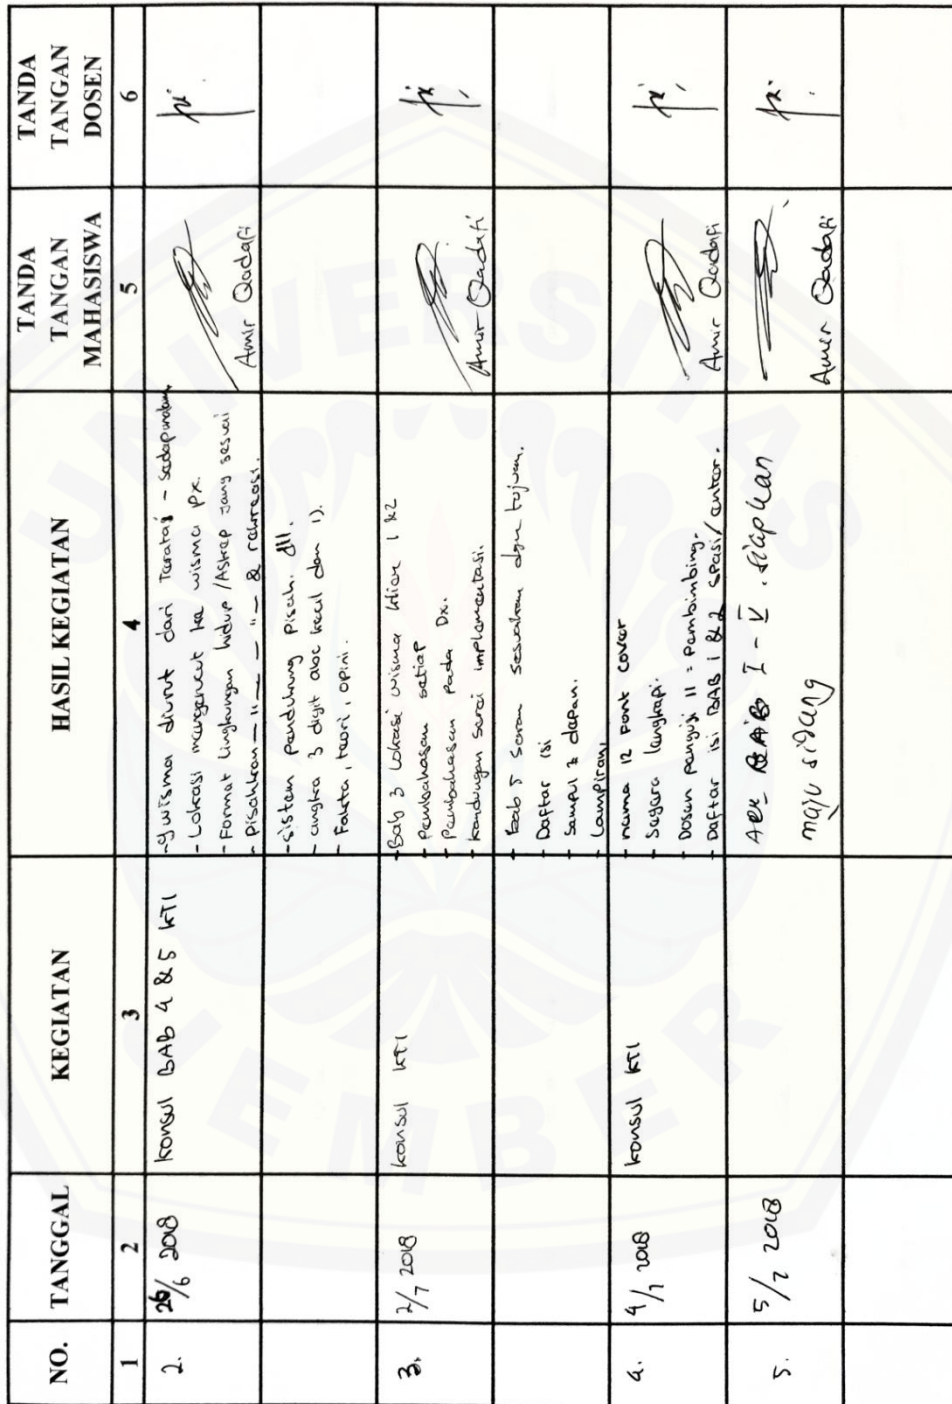 NO.
TANGGAL
KEGIATAN
HASIL KEGIATAN
TANDA
TANGAN
MAHASISWA
TANDA
TANGAN
DOSEN
1
2
3
4
5
6
2.
26/6 2018
konsul BAB 4 & 5 KTI
- 9 wisma diurut dari Teratai -
- Lokasi mengerucut ke wisma px.
- Format lingkungan hidup /Askep yang sesuai
- Pisahkan — " — — " — & rekreasi.
Amir Qadafi
- Sistem pendukung pisah. dll.
- angka 3 digit abc kecil dan 1).
- Fakta, teori, opini.
3.
2/7 2018
konsul KTI
- Bab 3 Lokasi wisma klien 1 & 2
- Pembahasan setiap
- Pembahasan pada Dx.
- kandungan serai implementasi.
Amir Qadafi
- Bab 5 saran sesuaikan dgn tujuan.
- Daftar isi
- Sampul & depan.
- Lampiran,
4.
4/7 2018
konsul KTI
- nama 12 font cover
- Segera lengkapi.
- Dosen penguji II = Pembimbing.
- Daftar isi BAB 1 & 2 spasi/enter.
Amir Qadafi
5.
5/7 2018
Acc BAB I - V . siapkan
maju sidang
Amir Qadafi
UNIVERSITAS
JEMBER